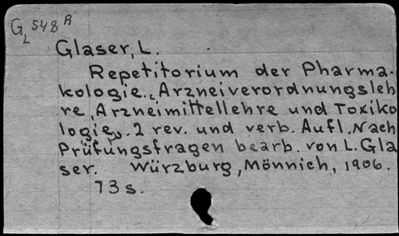 G₂ 548 R
Glaser, L.
Repetitorium der Pharma-
kologie. (Arzneiverordnungsleh
re, Arzneimittellehre und Toxiko
logie). 2 rev. und verb. Aufl. Nach
Prüfungsfragen bearb. von L. Gla
ser. Würzburg, Mönnich, 1906.
73 s.